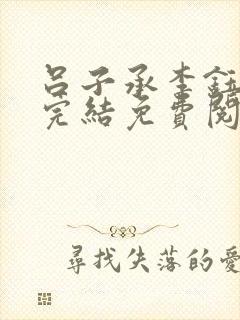 呂子承李鈺
完結免費閱
尋找失落的愛